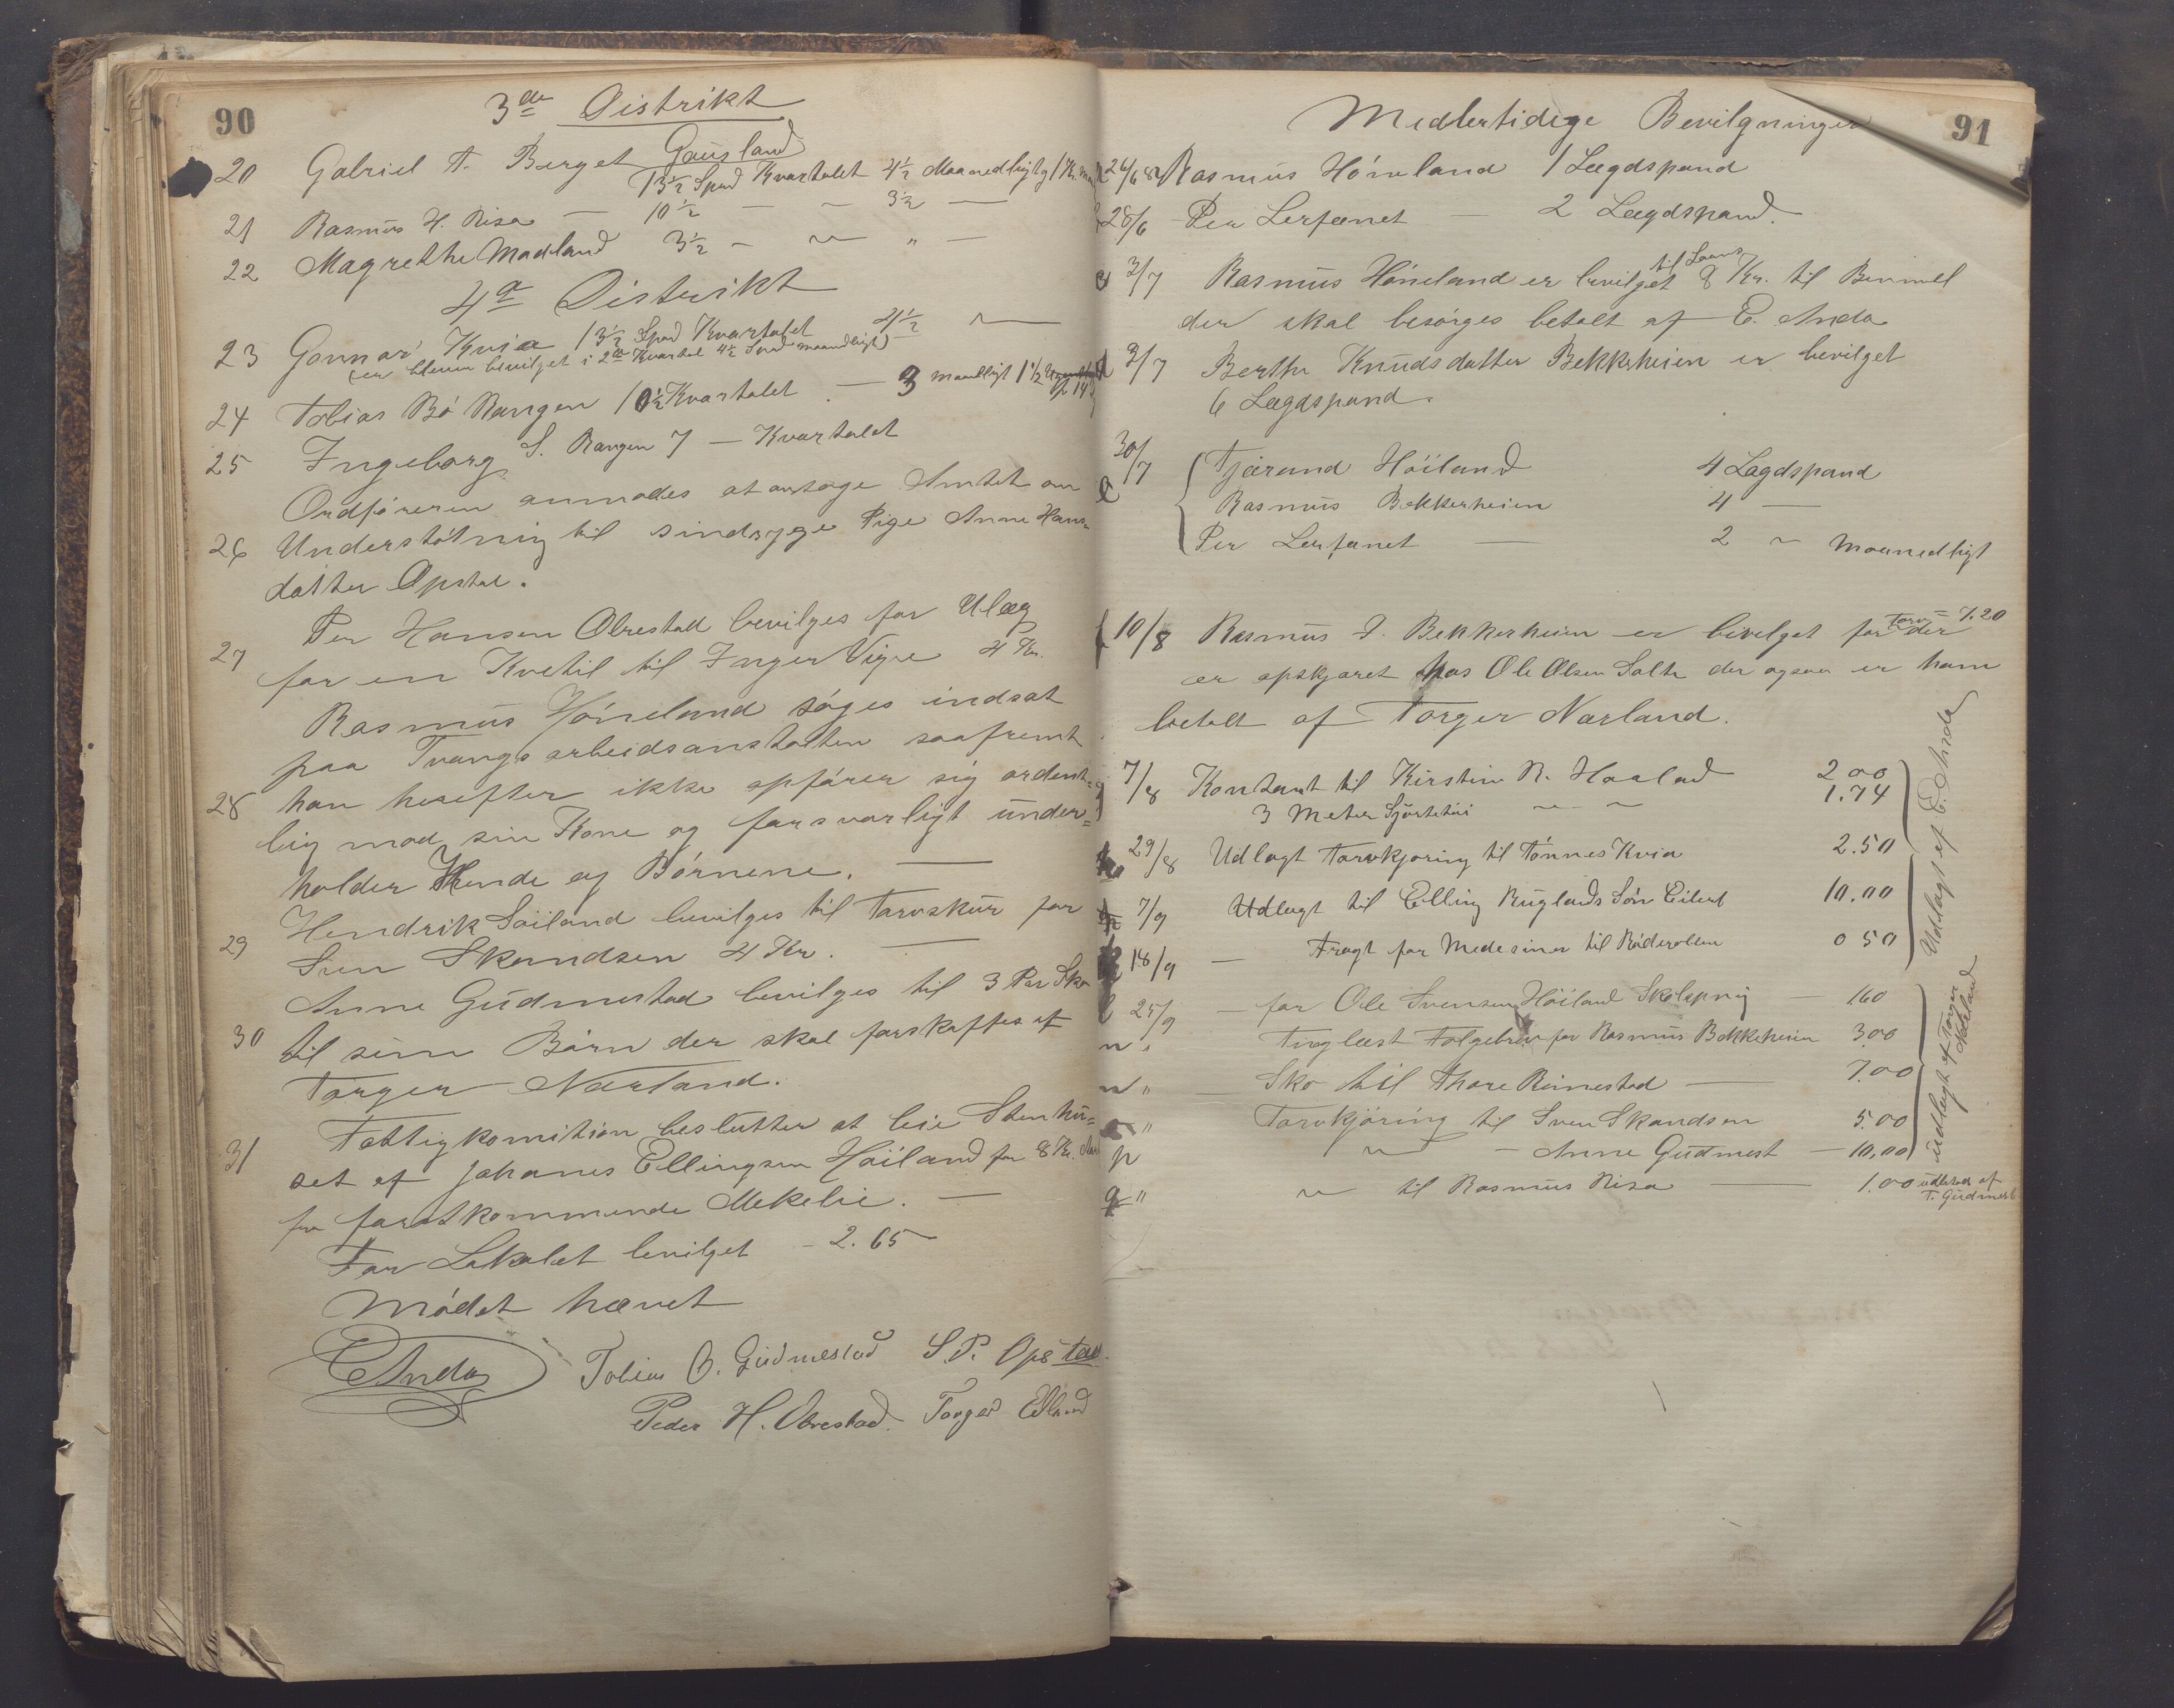 90
3de Distrikt
20 Gabriel A. Berget Gausland
13½ Spand Kvartalet 4½ Maanedligt og 1 Kr.
21 Rasmus H. Risa — 10½ — ~ 3½ —
22 Magrethe Madland 3½ - ~ " —
4de Distrikt
23 Gunnar Kvia 13½ Spand Kvartalet 4½ ~
(er bleven bevilget i 2det Kvartal 4½ Spand maanedligt)
24 Tobias Bö Rangen 10½ Kvartalet — 3 maanedligt 1½
25 Ingeborg S. Rangen 7 — Kvartalet
Ordföreren anmodes at ansöge Amtet om
26 Understötning til sindsyge Pige Anne Hans
datter Opstad.
Per Hansen Obrestad bevilges for Ulæg
27 for en Kvetil til Inger Vigre 4 Kr.
Rasmus Höneland söges indsat
paa Tvangsarbeidsanstalten saafremt
28 han herefter ikke opförer sig ordent=
lig mod sin Kone og forsvarligt under=
holder Hende og Börnene. —
29 Hendrik Söiland bevilges til Torvskur for
Sven Skandsen 4 Kr. —
Anne Gudmestad bevilges til 3 Par Sko
30 til sine Börn der skal forskaffes af
Torger Nærland.
Fattigkomition beslutter at leie Stenhu=
31 set af Johanes Ellingsen Höiland for 8 Kr.
for forestkommende Mekelie. —
For Lokalet bevilget - 2.65
Mödet hævet
E Anda Tobias O. Gudmestad S. P. Opstad.
Peder H. Obrestad. Torger Edland
91
Medlertidige Bevilgninger
26/6 82 Rasmus Höneland 1 Lægdspand
28/6 - Per Lerfanet — 2 Lægdspand.
3/7 Rasmus Höneland er bevilget til Laans 8 Kr. til Birmel
der skal besörges betalt af E. Anda
3/7 Berthe Knudsdatter Bekkeheien er bevilget
6 Lægdspand.
30/7 Tjærand Höiland 4 Lagdspand
e Rasmus Bekkerheien 4 —
Per Lerfanet — 2 ~ Maanedligt
f 10/8 Rasmus J. Bekkerheien er bevilget for Torv = 7.20
der
er opskjaret hos Ole Olsen Salte der ogsaa er ham
betalt af Torger Nærland.
7/8 Kontant til Kirstine N. Haaland 2 00
3 Meter Sjörtetöi ~ ~ 1.74
29/8 Udlagt Torvkjöring til Tönnes Kvia 2.50
7/9 Udlagt til Elling Ruglands Sön Eilert 10.00
18/9 — Fragt for Medesiner til Röderolden 0 50
Udlagt af E. Anda
l 25/9 — for Ole Svensen Höiland Skolepnig — 160
n " Folgebrev for Rasmus Bekkeheien 3.00
n " Sko til Thore Rimestad — 7.00
o " Torvkjöring til Sven Skandsen 5.00
p ~ - Anne Gudmest — 10,00
udlagt af Torger Nærland
q " ~ til Rasmus Risa — 1.00 udbetalt af
T. Gudmest